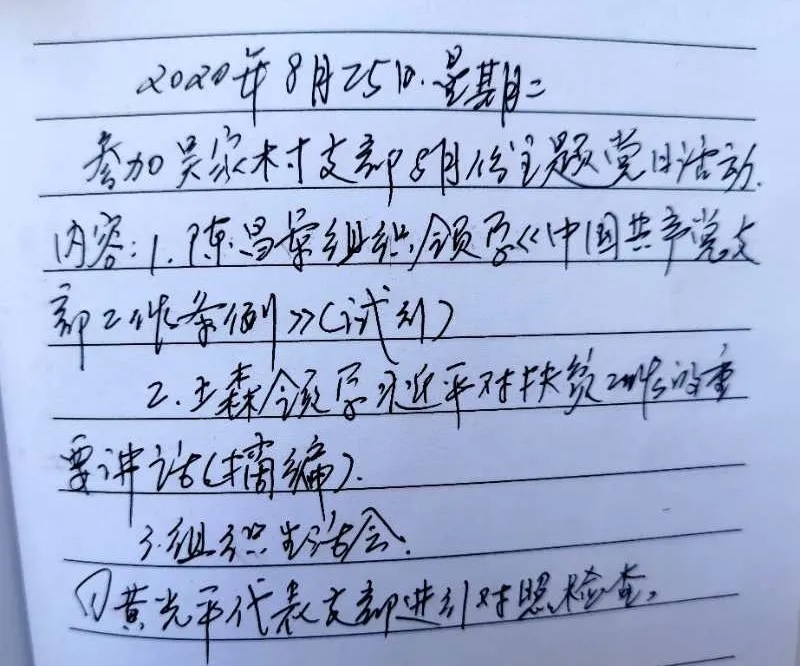 2020年8月25日.星期二
参加吴家村支部8月份主题党日活动.
内容:1.陈昌荣组织领学《中国共产党支
部工作条例》(试行)
2.王森领学习近平对扶贫工作的重
要讲话(摘编).
3.组织生活会.
①黄光平代表支部进行对照检查。